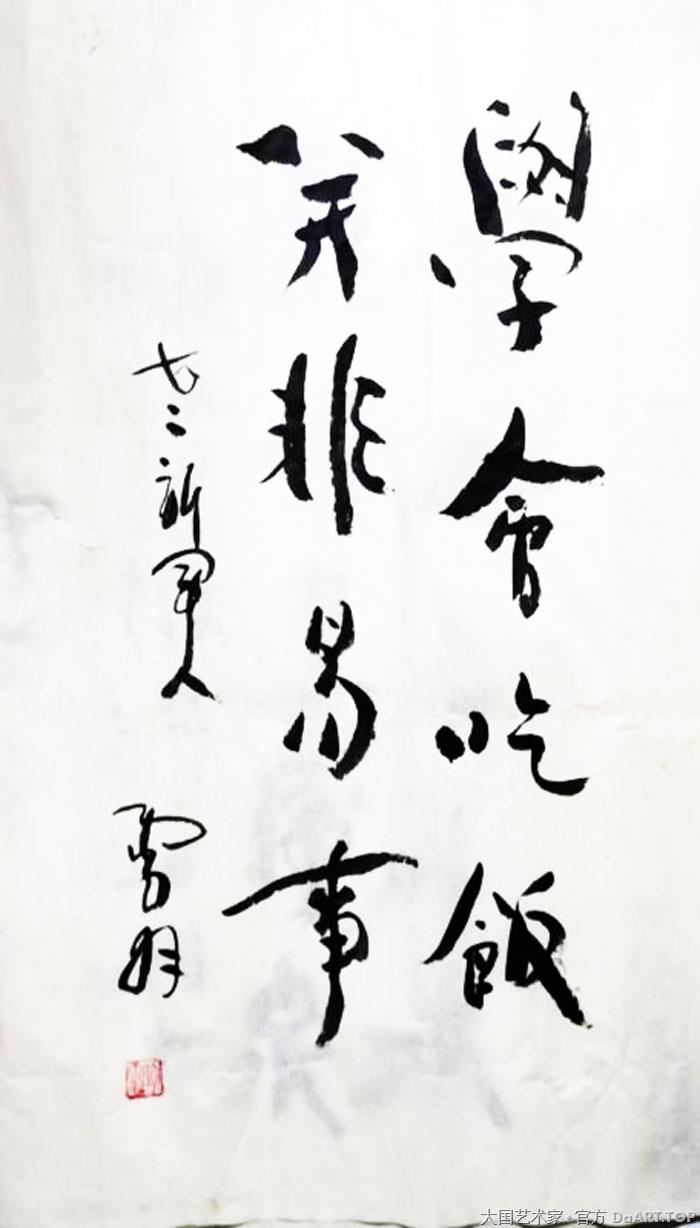 學會吃飯
并非易事
七二新军人
大国艺术家·官方 DaART.TOP